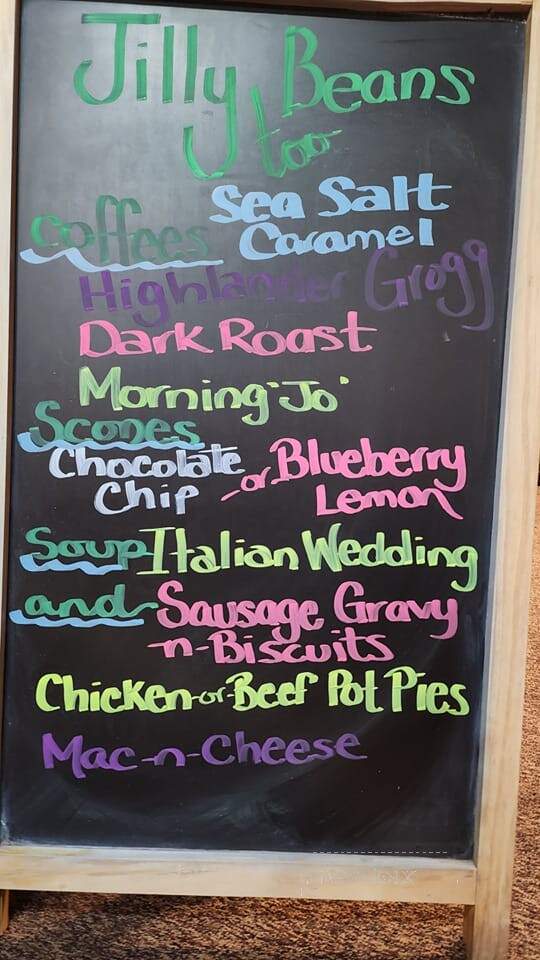 Jilly Beans
too
Coffees Sea Salt
Caramel
Highlander Grogg
Dark Roast
Morning "Jo"
Scones
Chocolate
Chip -or- Blueberry
Lemon
Soup Italian Wedding
and- Sausage Gravy
-n- Biscuits
Chicken-or-Beef Pot Pies
Mac-n-Cheese